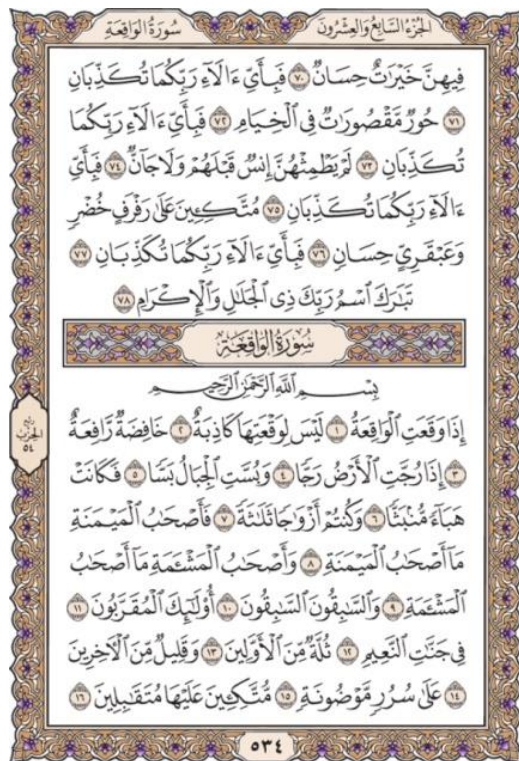 الجُزْءُ السَّابِعُ وَالعِشْرُونَ
سُورَةُ الوَاقِعَةِ
فِيهِنَّ خَيْرَٰتٌ حِسَانٌ ۝٧٠ فَبِأَيِّ ءَالَآءِ رَبِّكُمَا تُكَذِّبَانِ
۝٧١ حُورٌ مَّقْصُورَٰتٌ فِي ٱلْخِيَامِ ۝٧٢ فَبِأَيِّ ءَالَآءِ رَبِّكُمَا
تُكَذِّبَانِ ۝٧٣ لَمْ يَطْمِثْهُنَّ إِنسٌ قَبْلَهُمْ وَلَا جَآنٌّ ۝٧٤ فَبِأَيِّ
ءَالَآءِ رَبِّكُمَا تُكَذِّبَانِ ۝٧٥ مُتَّكِـِٔينَ عَلَىٰ رَفْرَفٍ خُضْرٍ
وَعَبْقَرِيٍّ حِسَانٍ ۝٧٦ فَبِأَيِّ ءَالَآءِ رَبِّكُمَا تُكَذِّبَانِ ۝٧٧
تَبَٰرَكَ ٱسْمُ رَبِّكَ ذِي ٱلْجَلَٰلِ وَٱلْإِكْرَامِ ۝٧٨
سُورَةُ الوَاقِعَةِ
بِسْمِ ٱللَّهِ ٱلرَّحْمَٰنِ ٱلرَّحِيمِ
إِذَا وَقَعَتِ ٱلْوَاقِعَةُ ۝١ لَيْسَ لِوَقْعَتِهَا كَاذِبَةٌ ۝٢ خَافِضَةٌ رَّافِعَةٌ
۝٣ إِذَا رُجَّتِ ٱلْأَرْضُ رَجًّا ۝٤ وَبُسَّتِ ٱلْجِبَالُ بَسًّا ۝٥ فَكَانَتْ
هَبَآءً مُّنۢبَثًّا ۝٦ وَكُنتُمْ أَزْوَٰجًا ثَلَٰثَةً ۝٧ فَأَصْحَٰبُ ٱلْمَيْمَنَةِ
مَآ أَصْحَٰبُ ٱلْمَيْمَنَةِ ۝٨ وَأَصْحَٰبُ ٱلْمَشْـَٔمَةِ مَآ أَصْحَٰبُ
ٱلْمَشْـَٔمَةِ ۝٩ وَٱلسَّٰبِقُونَ ٱلسَّٰبِقُونَ ۝١٠ أُو۟لَٰٓئِكَ ٱلْمُقَرَّبُونَ ۝١١
فِي جَنَّٰتِ ٱلنَّعِيمِ ۝١٢ ثُلَّةٌ مِّنَ ٱلْأَوَّلِينَ ۝١٣ وَقَلِيلٌ مِّنَ ٱلْأٓخِرِينَ
۝١٤ عَلَىٰ سُرُرٍ مَّوْضُونَةٍ ۝١٥ مُّتَّكِـِٔينَ عَلَيْهَا مُتَقَٰبِلِينَ ۝١٦
ربع
الحزب
٥٤
٥٣٤